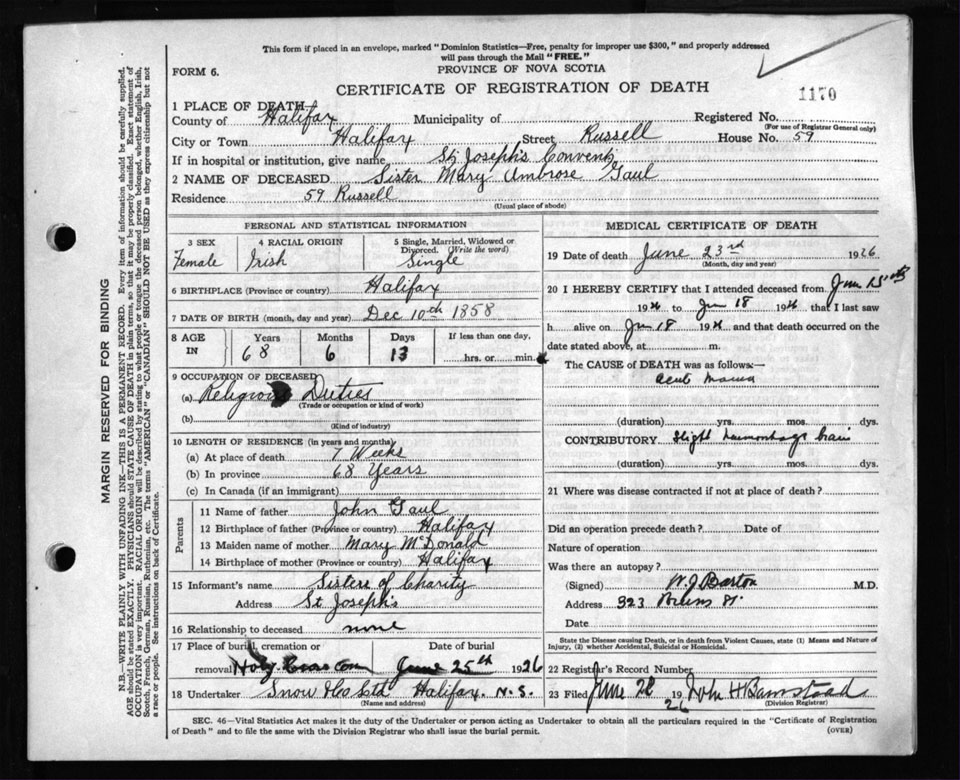 This form if placed in an envelope, marked "Dominion Statistics—Free, penalty for improper use $300," and properly addressed
will pass through the Mail "FREE."
FORM 6.
PROVINCE OF NOVA SCOTIA
CERTIFICATE OF REGISTRATION OF DEATH
1170
1 PLACE OF DEATH—
County of Halifax Municipality of Registered No.
(For use of Registrar General only)
City or Town Halifax Street Russell House No. 59
If in hospital or institution, give name St. Joseph's Convent
2 NAME OF DECEASED Sister Mary Ambrose Gaul
Residence 59 Russell
(Usual place of abode)
PERSONAL AND STATISTICAL INFORMATION
3 SEX 4 RACIAL ORIGIN 5 Single, Married, Widowed or
Divorced. (Write the word)
Female Irish Single
6 BIRTHPLACE (Province or country) Halifax
7 DATE OF BIRTH (month, day and year) Dec 10th 1858
8 AGE IN Years Months Days If less than one day,
68 6 13 hrs. or min.
9 OCCUPATION OF DECEASED
(a) Religious Duties
(Trade or occupation or kind of work)
(b)
(Kind of industry)
10 LENGTH OF RESIDENCE (in years and months)
(a) At place of death 7 Weeks
(b) In province 68 Years
(c) In Canada (if an immigrant)
Parents
11 Name of father John Gaul
12 Birthplace of father (Province or country) Halifax
13 Maiden name of mother Mary McDonald
14 Birthplace of mother (Province or country) Halifax
15 Informant's name Sisters of Charity
Address St Joseph's
16 Relationship to deceased none
17 Place of burial, cremation or Date of burial
removal Holy Cross Cem June 25th 1926
18 Undertaker Snow & Co Ltd Halifax. N.S.
(Name and address)
MEDICAL CERTIFICATE OF DEATH
19 Date of death June 23rd 1926
(Month, day and year)
20 I HEREBY CERTIFY that I attended deceased from Jun 15th
1926 to Jun 18 1926 that I last saw
h alive on Jun 18 1926 and that death occurred on the
date stated above, at m.
The CAUSE of DEATH was as follows:—
Acute Mania
(duration) yrs. mos. dys.
CONTRIBUTORY Slight Brain
(duration) yrs. mos. dys.
21 Where was disease contracted if not at place of death?
Did an operation precede death? Date of
Nature of operation
Was there an autopsy?
(Signed) W.J. Barton M.D.
Address 323 St.
Date
State the Disease causing Death, or in death from Violent Causes, state (1) Means and Nature of
Injury, (2) whether Accidental, Suicidal or Homicidal.
22 Registrar's Record Number
23 Filed June 28 1926 John H Barnstead
(Division Registrar)
SEC. 46—Vital Statistics Act makes it the duty of the Undertaker or person acting as Undertaker to obtain all the particulars required in the "Certificate of Registration
of Death" and to file the same with the Division Registrar who shall issue the burial permit.
(OVER)
MARGIN RESERVED FOR BINDING
N.B.—WRITE PLAINLY WITH UNFADING INK—THIS IS A PERMANENT RECORD. Every item of information should be carefully supplied.
AGE should be stated EXACTLY. PHYSICIANS should STATE CAUSE OF DEATH in plain terms, so that it may be properly classified. Exact statement of
OCCUPATION is very important. RACIAL ORIGIN will be described by stating to what people or tongue the deceased person belonged, whether English, Irish,
Scotch, French, German, Russian, Ruthenian, etc. The terms "AMERICAN" or "CANADIAN" SHOULD NOT BE USED as they express citizenship but not
a race or people. See instructions on back of Certificate.